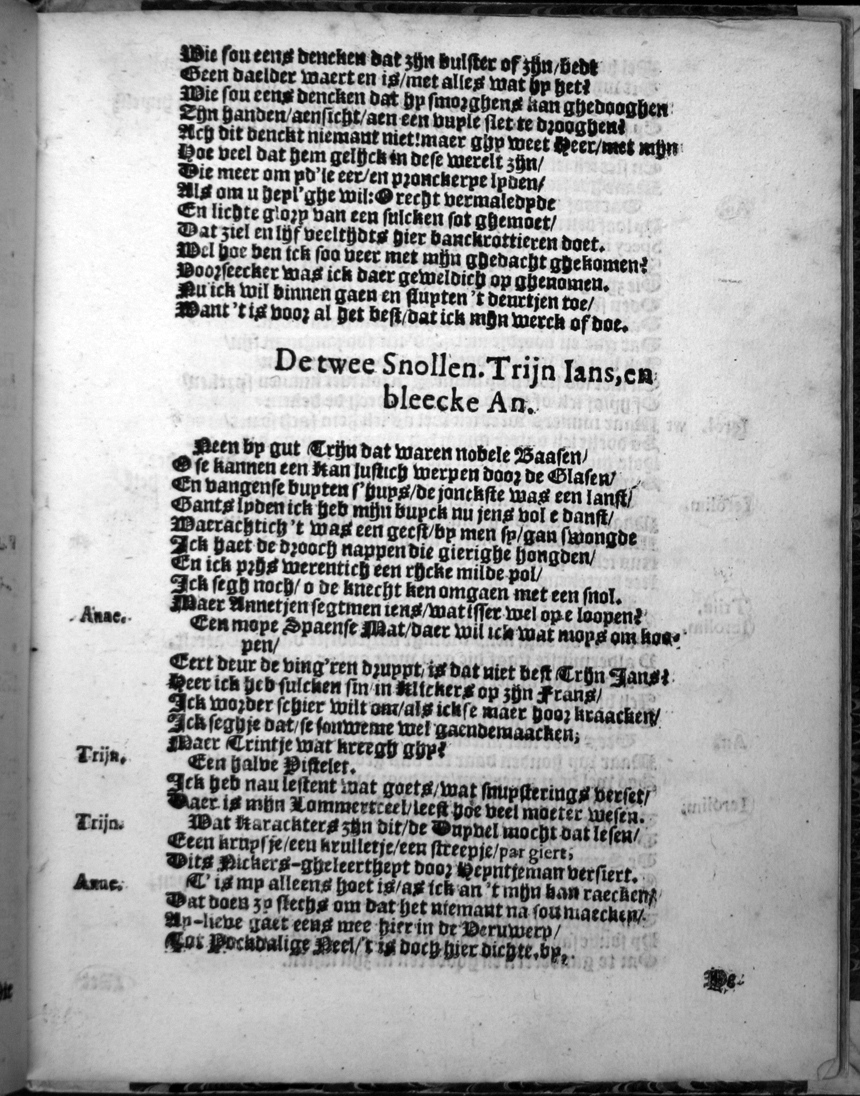 Wie sou eens dencken dat zijn bulster of zijn/bedt
Geen daelder waert en is/met alles wat hy het?
Wie sou eens dencken dat hy smorghens kan ghedooghen
Zijn handen/aensicht/aen een vuyle slet te drooghen?
Ach dit denckt niemant niet!maer ghy weet Heer/met mijn
Hoe veel dat hem gelijck in dese werelt zijn/
Die meer om yd'le eer/en pronckerye lyden/
Als om u heyl'ghe wil:O recht vermaledyde
En lichte glory van een sulcken sot ghemoet/
Dat ziel en lijf veeltijdts hier banckrottieren doet.
Wel hoe ben ick soo veer met mijn ghedacht ghekomen?
Voorseecker was ick daer geweldich op ghenomen.
Nu ick wil binnen gaen en sluyten 't deurtjen toe/
Want 't is voor al het best/dat ick mijn werck of doe.
De twee Snollen. Trijn Ians,en
bleecke An.
Neen by gut Trijn dat waren nobele Baasen/
O se kannen een Kan lustich werpen door de Glasen/
En vangense buyten s'huys/de jonckste was een lanst/
Gants lyden ick heb mijn buyck nu jens vol e danst/
Waerachtich 't was een geest/by men sy/gan swongde
Ick haet de drooch nappen die gierighe hongden/
En ick prijs werentich een rijcke milde pol/
Ick segh noch/ o de knecht ken omgaen met een snol.
Maer Annetjen segtmen iens/wat isser wel op e loopen?
Anne. Een moye Spaense Mat/daer wil ick wat moys om koo-
pen/
Eert deur de ving'ren druppt/is dat niet best Trijn Jans?
Heer ick heb sulcken sin in Klickers op zijn Frans/
Ick worder schier wilt om/als ickse maer hoor kraacken/
Ick seghje dat/se sonweme wel gaendemaacken;
Maer Trintje wat kreegh ghy?
Trijn. Een halve Pistelet.
Ick heb nau lestent wat goets/wat snupsterings verset/
Daer is mijn Lommertceel/leest hoe veel moeter wesen.
Trijn. Wat Karackters zijn dit/de Duyvel mocht dat lesen/
Eeen kruysje/een krulletje/een streepje/par giert,
Dits Nickers-gheleertheyt door Heyntjeman versiert.
Anne. T' is my alleens hoet is/as ick an 't mijn kan raecken/
Dat doen zy slechs om dat het niemant na sou maecken/
An-lieve gaet eens mee hier in de Veruwery/
Tot Pockdalige Neel/'t is doch hier dichte by,
De